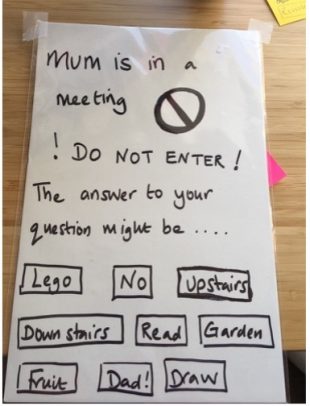 Mum is in a
meeting
! DO NOT ENTER !
The answer to your
question might be ....
Lego No Upstairs
Downstairs Read Garden
Fruit Dad! Draw